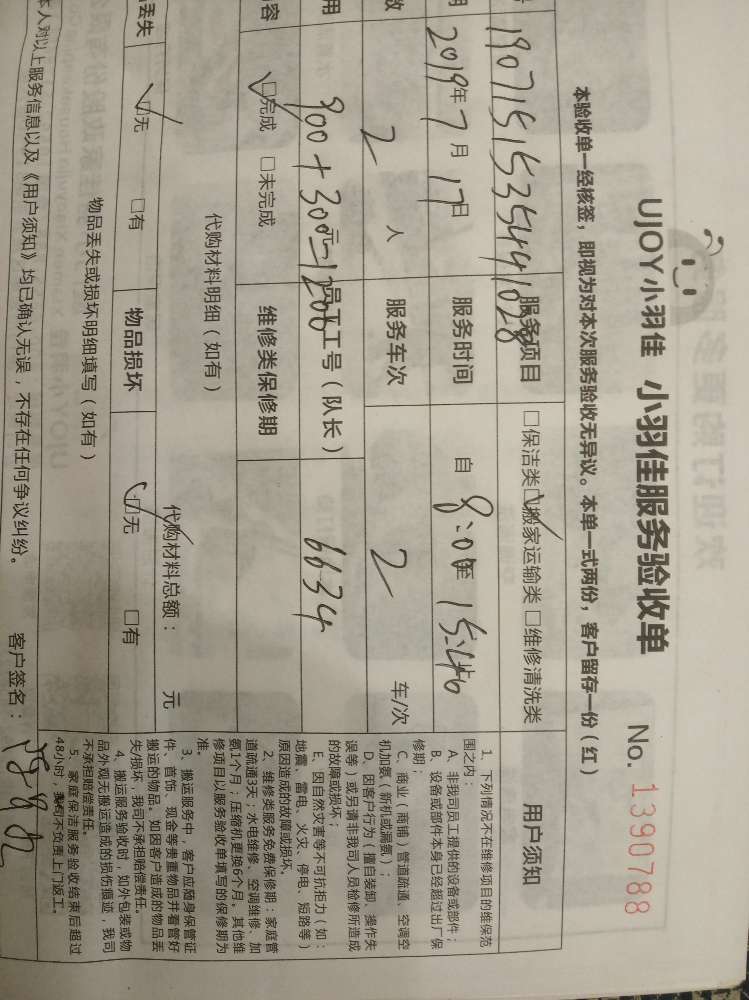 UJOY小羽佳 小羽佳服务验收单 No. 1390788
本验收单一经核签，即视为对本次服务验收无异议。本单一式两份，客户留存一份（红）
1907151535441028 服务项目 □保洁类 ☑搬家运输类 □维修清洗类
期 2019年7月17日 服务时间 自 8:00至 15:46
数 2 人 服务车次 2 车/次
用 900+300元=1200 员工工号（队长） 6634
容 ☑完成 □未完成 维修类保修期
代购材料明细（如有） 代购材料总额： 元
丢失 ☑无 □有 物品损坏 ☑无 □有
物品丢失或损坏明细填写（如有）
本人对以上服务信息以及《用户须知》均已确认无误，不存在任何争议纠纷。 客户签名：
用户须知
1、下列情况不在维修项目的维保范
围之内：
A、非我司员工提供的设备或部件；
B、设备或部件本身已经超过出厂保
修期；
C、商业（商铺）管道疏通、空调空
机加氨（新机或漏氨）；
D、因客户行为（擅自装卸、操作失
误等）或另请非我司人员检修所造成
的故障或损坏；
E、因自然灾害等不可抗拒力（如：
地震、雷电、火灾、停电、短路等）
原因造成的故障或损坏。
2、维修类服务免费保修期：家庭管
道疏通3天；水电维修、空调维修、加
氨1个月；压缩机更换6个月。其他维
修项目以服务验收单填写的保修期为
准。
3、搬运服务中，客户应随身保管证
件、首饰、现金等贵重物品并看管好
搬运的物品。如因客户造成的物品丢
失/损坏，我司不承担赔偿责任。
4、搬运服务验收时，如外包装或物
品外观无搬运造成的损伤痕迹，我司
不承担赔偿责任。
5、家庭保洁服务验收结束后超过
48小时，我司不负责上门返工。